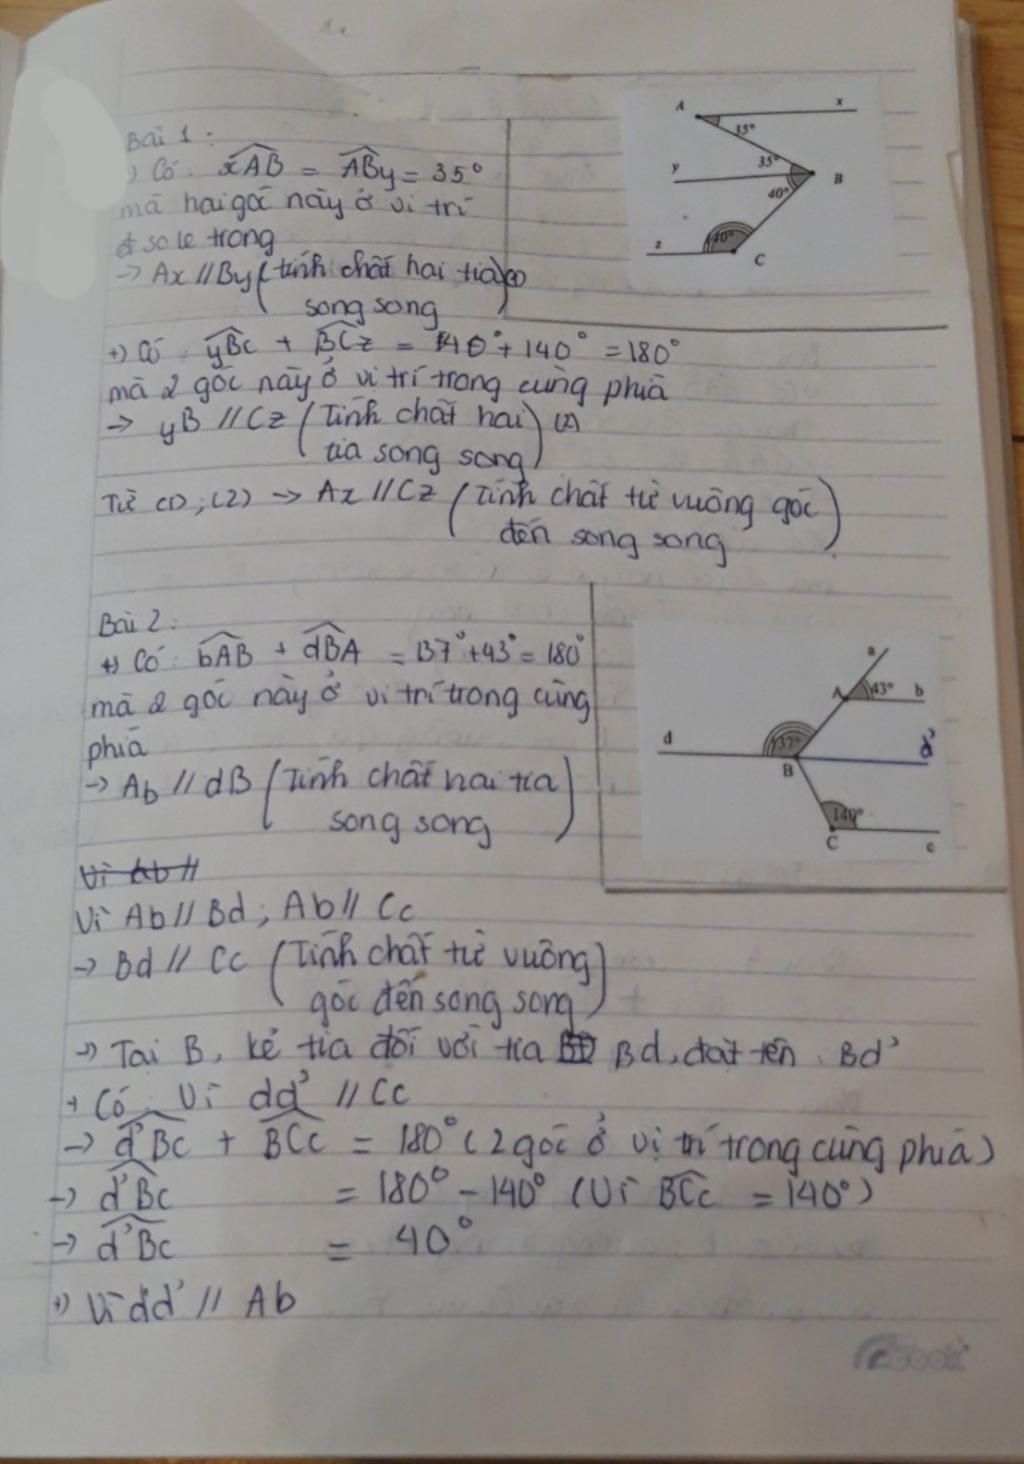 Bài 1:
+) Có. xAB = ABy = 35°
mà hai góc này ở vị trí
so le trong
→ Ax // By (tính chất hai tia (1)
song song)
A
x
35°
y
35°
B
40°
140°
z
C
+) Có yBc + BCz = 40° + 140° = 180°
mà 2 góc này ở vị trí trong cùng phía
→ yB // Cz (Tính chất hai (2)
tia song song)
Từ (1), (2) → Ax // Cz (Tính chất từ vuông góc
đến song song)
Bài 2:
+) Có bAB + dBA = 137° + 43° = 180°
mà 2 góc này ở vị trí trong cùng
phía
→ Ab // dB (Tính chất hai tia
song song)
a
A
43°
b
d
137°
d'
B
140°
C
c
Vì Ab //
Vì Ab // Bd; Ab // Cc
→ Bd // Cc (Tính chất từ vuông
góc đến song song)
→ Tại B, kẻ tia đối với tia Bd, đặt tên Bd'
+ Có Vì dd' // Cc
→ d'Bc + BCc = 180° (2 góc ở vị trí trong cùng phía)
→ d'Bc = 180° - 140° (Vì BCc = 140°)
→ d'Bc = 40°
+) Vì dd' // Ab